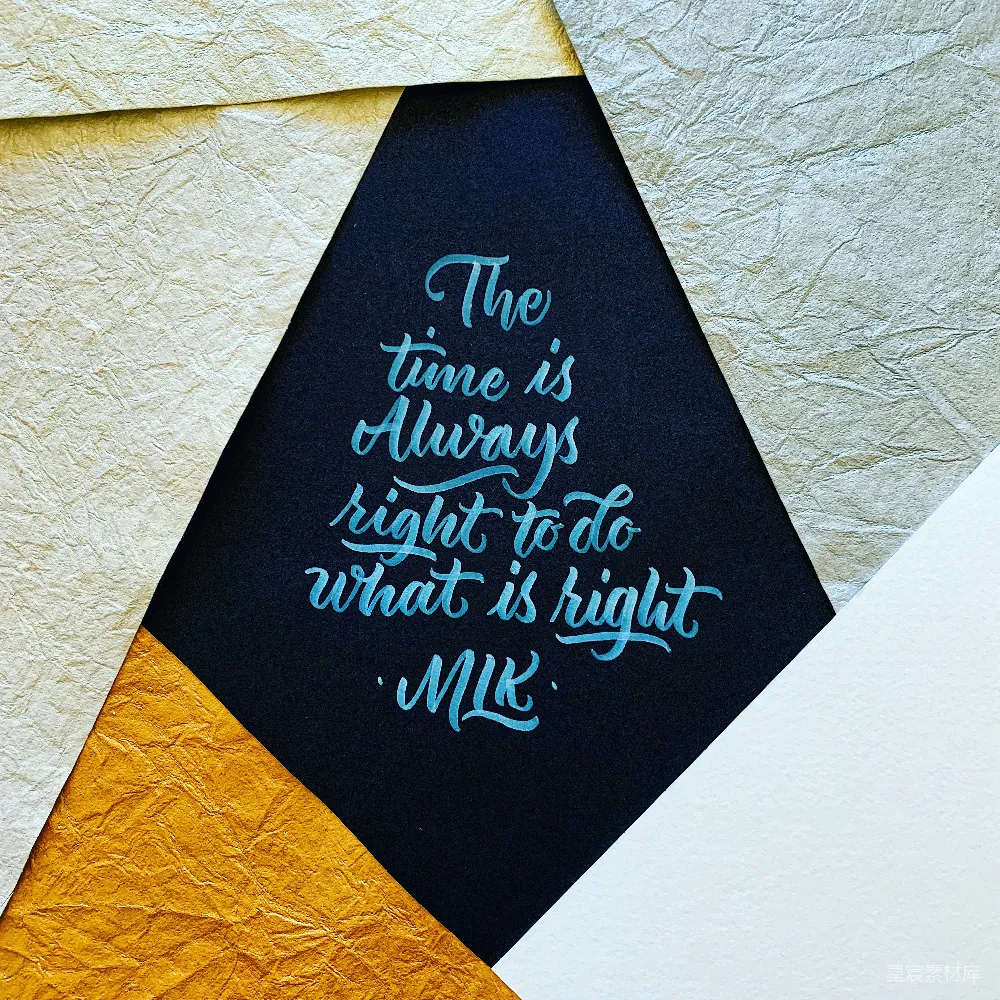 The
time is
Always
right to do
what is right
·MLK·
星宸素材库